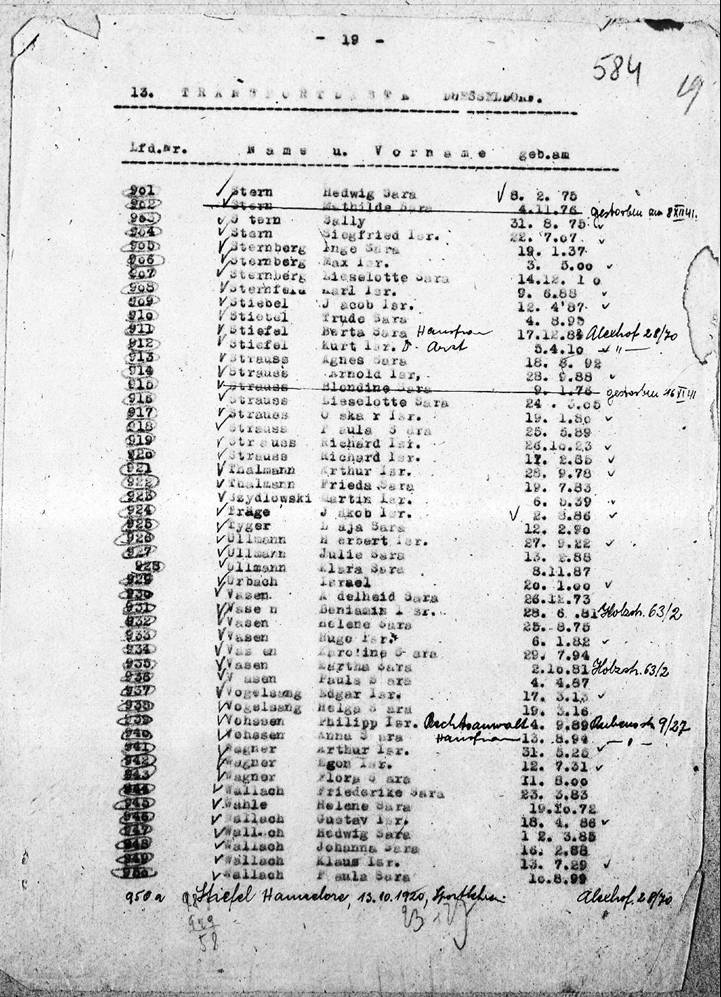 - 19 -
584
19
13. TRANSPORTLISTE DUESSELDORF.
Lfd.nr. Name u. Vorname geb.am
901 Stern Hedwig Sara 8. 2. 75
902 Stern Mathilde Sara 4.11.76 gestorben am 8 XII 41.
903 S tern Sally 31. 8. 75
904 Stern Siegfried Isr. 22. 7.07.
905 Sternberg Inge Sara 19. 1.37
906 Sternberg Max Isr. 3. 5.00
907 Sternberg Lieselotte Sara 14.12. 1 0
908 Sternfeld Karl Isr. 9. 6.88
909 Stiebel J acob Isr. 12. 4.87
910 Stiebel Trude Sara 4. 8.95
911 Stiefel Berta Sara Hausfrau 17.12.84 Alexhof 28/70
912 Stiefel Kurt Isr. Arzt 5.4.10 - " -
913 Strauss Agnes Sara 18. 8. 92
914 Strauss Arnold Isr. 28. 9.88
915 Strauss Blondine Sara 9. 1.76 gestorben 16 XII 41
916 Strauss Lieselotte Sara 24 . 3.05
917 Strauss O ska r Isr. 19. 1.80
918 Strauss P aula S ara 25. 5.89
919 Str auss Richard Isr. 26.10.23
920 Strauss Richard Isr. 17. 2.85
921 Thalmann Arthur Isr. 28. 9.78
922 Thalmann Frieda Sara 19. 7.83
923 Szydlowski Martin Isr. 6. 5.39
924 Träge J akob Isr. 2. 8.86
925 Tyger Sara 12. 2.90
926 Ullmann H erbert Isr. 27. 9.22
927 Ullmann Julie Sara 13. 2.88
928 Ullmann Klara Sara 8.11.87
929 Urbach Israel 20. 1.00
930 Vasen A delheid Sara 26.12.73
931 Vase n Benjamin I sr. 28. 6 .81 Holzstr. 63/2
932 Vasen Helene Sara 25. 8.75
933 Vasen Hugo Isr. 6. 1.82
934 Vas en Karoline S ara 29. 7.94
935 Vasen Martha Sara 2.10.81 Holzstr. 63/2
936 V asen Paula S ara 4. 4.87
937 Vogelsang Edgar Isr. 17. 3.13
938 Vogelsang Helga S ara 19. 3.16
939 Vohssen Philipp Isr. Rechtsanwalt 4. 9.89 Rubensstr 9/27
940 Vohssen Anna S ara Hausfrau 13. 8.94 - " -
941 Wagner Arthur Isr. 31. 5.25
942 Wagner Egon Isr. 12. 7.31
943 Wagner Flora S ara 11. 8.00
944 Wallach Friederike Sara 23. 3.83
945 Wahle Helene Sara 19.10.72
946 Wallach Gustav Isr. 18. 4. 86
947 Wallach Hedwig Sara 1 2. 3.85
948 Wallach Johanna Sara 16. 2.88
949 Wallach Klaus Isr. 13. 7.29
950 Wallach P aula Sara 10.8.99
950a Stiefel Hannelore, 13.10.1920, Alexhof 28/70
58